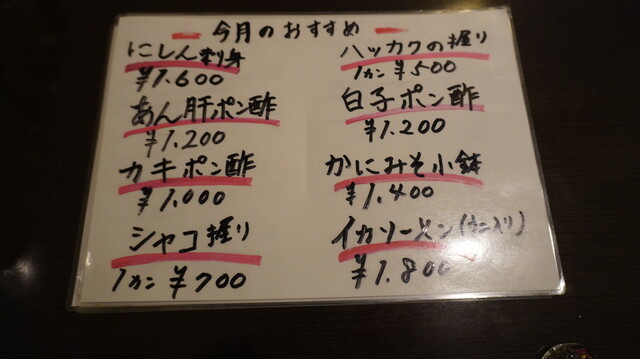 今月のおすすめ
にしん刺身
¥1.600
あん肝ポン酢
¥1.200
カキポン酢
¥1.000
シャコ握り
1カン ¥700
ハッカクの握り
1カン ¥500
白子ポン酢
¥1.200
かにみそ小鉢
¥1.400
イカソーメン(ウニ入り)
¥1.800